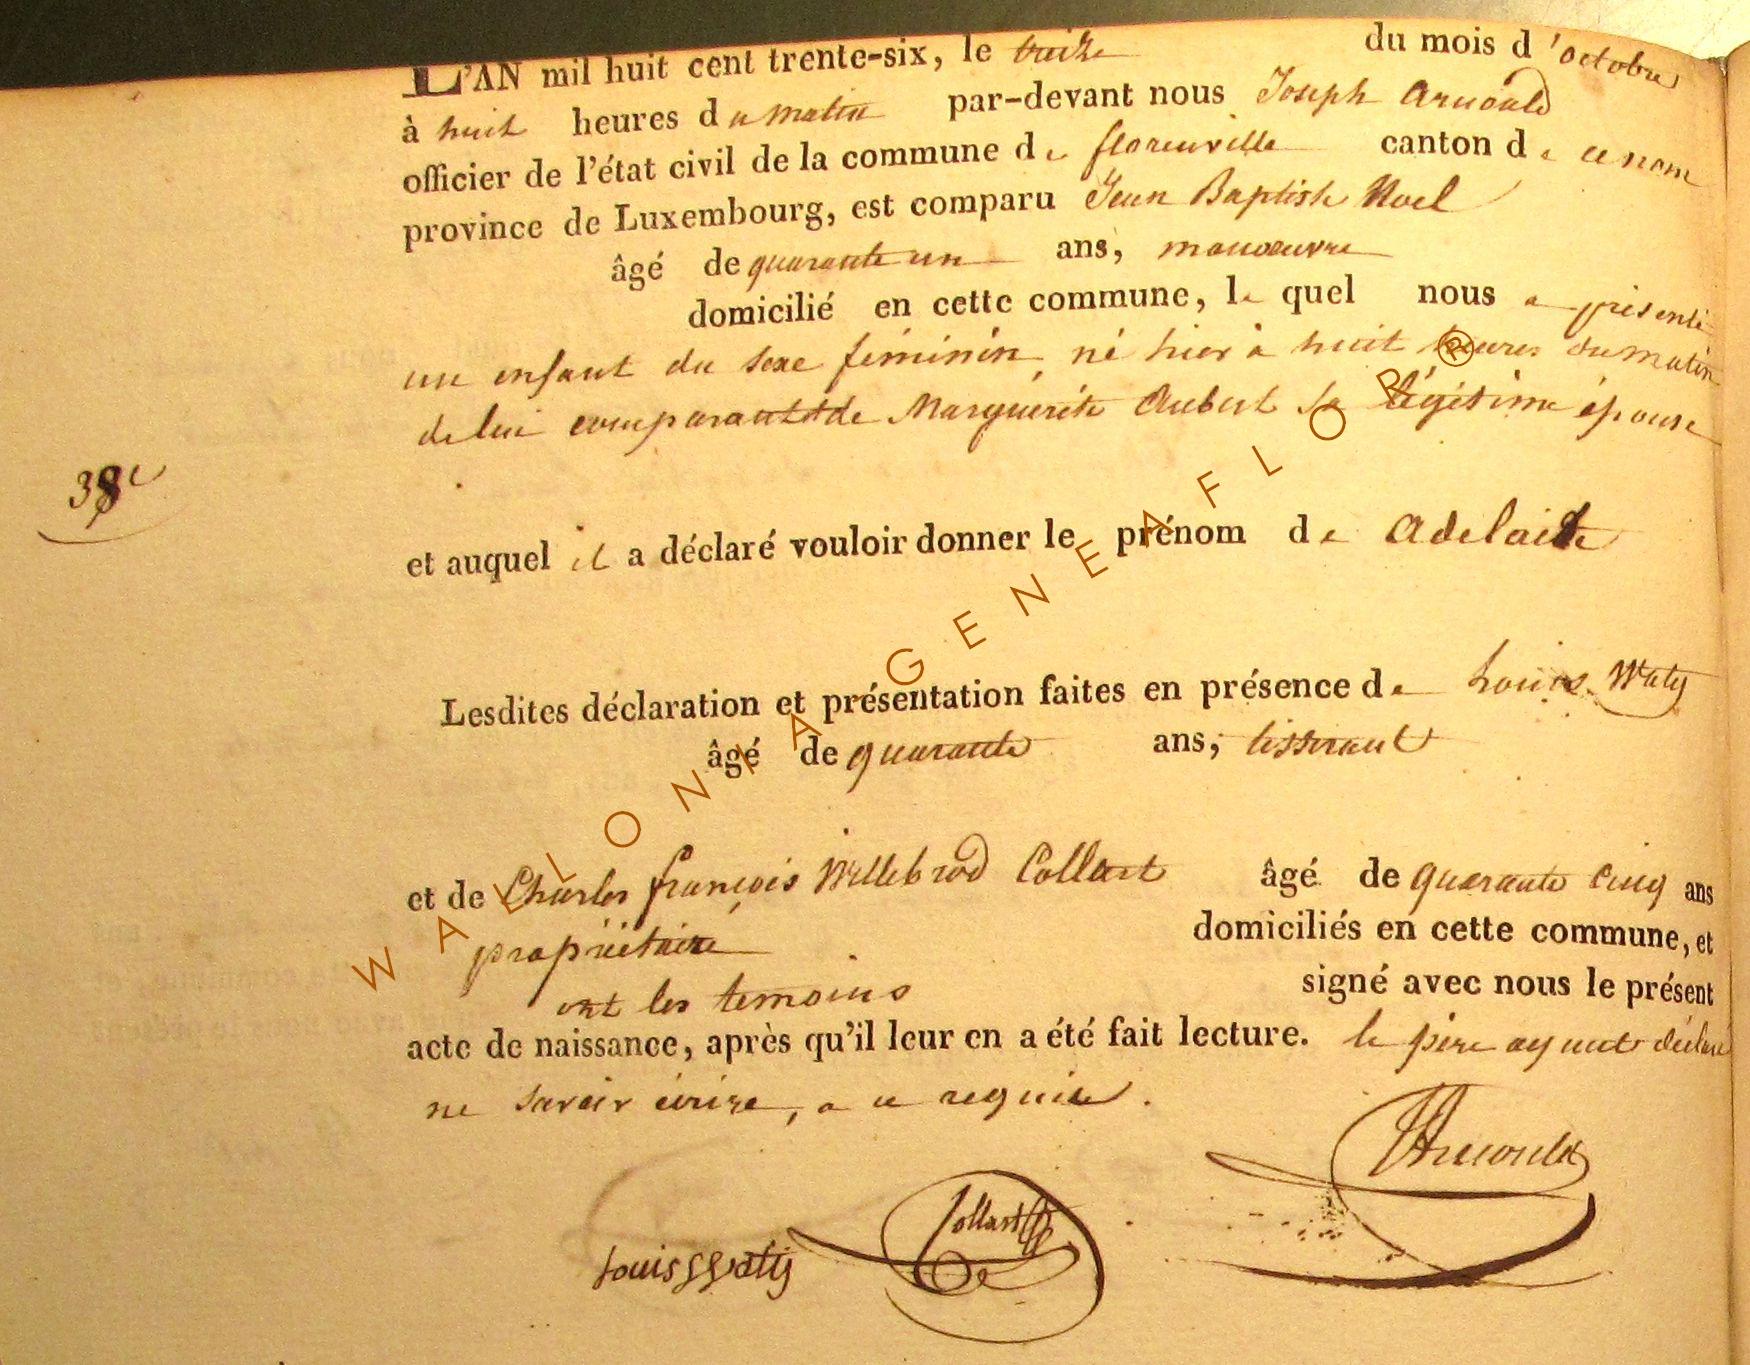 L'AN mil huit cent trente-six, le treize du mois d'octobre
à huit heures du matin par-devant nous Joseph Arnould
officier de l'état civil de la commune de florenville canton de ce nom
province de Luxembourg, est comparu Jean Baptiste Noel
âgé de quarante un ans, manoeuvre
domicilié en cette commune, le quel nous a présenté
un enfant du sexe féminin, né hier à huit heures du matin
de lui comparant & de Marguérite Aubert sa légitime épouse
38e
et auquel il a déclaré vouloir donner le prénom de Adelaide
Lesdites déclaration et présentation faites en présence de Louis Waty
âgé de quarante ans, tisserant
et de Charles françois Willebrod Collart âgé de quarante cinq ans
propriétaire domiciliés en cette commune, et
ont les temoins signé avec nous le présent
acte de naissance, après qu'il leur en a été fait lecture. le père ayant déclaré
ne savoir écrire, a ce requis.
JArnould
Collart
Louis Waty
WALLONIA GENEAFLOR ®